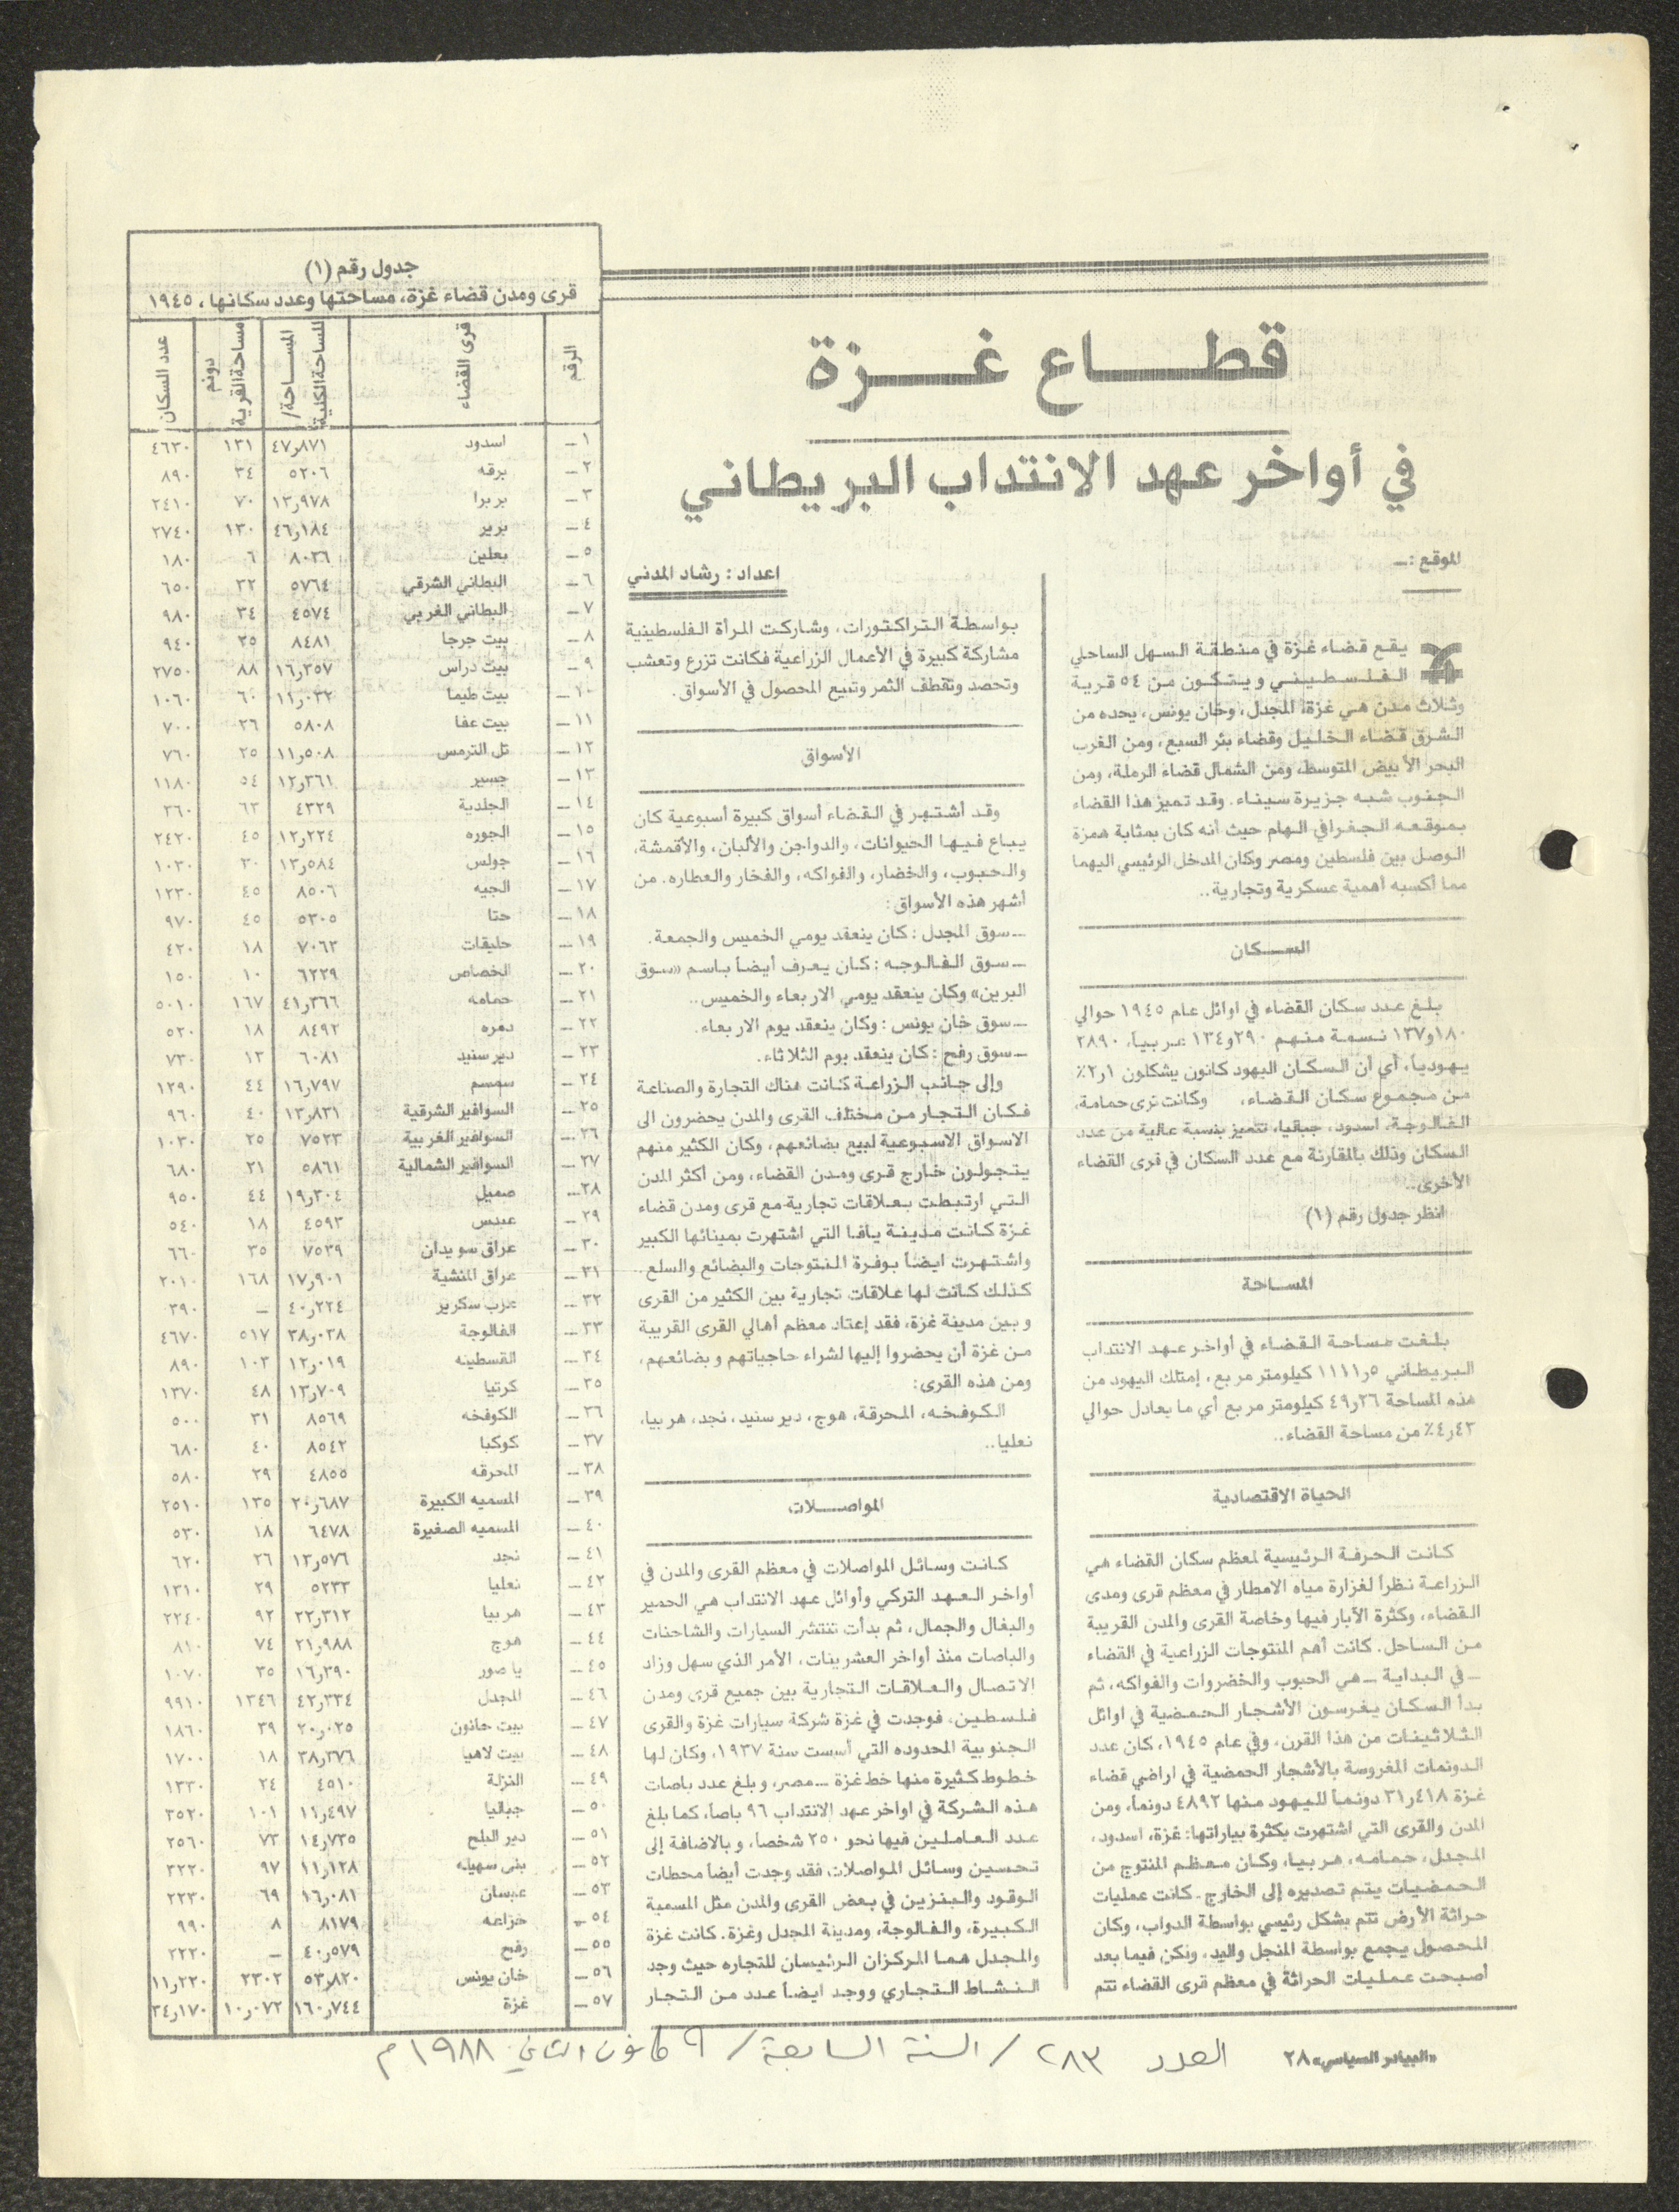 قطاع غزة
في أواخر عهد الانتداب البريطاني
اعداد : رشاد المدني
الموقع :ــ
يقع قضاء غزة في منطقة السهل الساحلي
الفلسطيني ويتكون من ٥٤ قرية
وثلاث مدن هي غزة، المجدل، وخان يونس، يحده من
الشرق قضاء الخليل وقضاء بئر السبع، ومن الغرب
البحر الأبيض المتوسط، ومن الشمال قضاء الرملة، ومن
الجنوب شبه جزيرة سيناء. وقد تميز هذا القضاء
بموقعه الجغرافي الهام حيث أنه كان بمثابة همزة
الوصل بين فلسطين ومصر وكان المدخل الرئيسي اليهما
مما أكسبه أهمية عسكرية وتجارية..
السكان
بلغ عدد سكان القضاء في اوائل عام ١٩٤٥ حوالي
١٣٧و١٨٠ نسمة منهم ١٣٤و٢٩٠ عربياً، ٢٨٩٠
يهودياً، أي أن السكان اليهود كانون يشكلون ٢ر١٪
من مجموع سكان القضاء، وكانت قرى حمامة،
الفالوجة، اسدود، جباليا، تتميز بنسبة عالية من عدد
السكان وذلك بالمقارنة مع عدد السكان في قرى القضاء
الأخرى..
انظر جدول رقم (١)
المساحة
بلغت مساحة القضاء في أواخر عهد الانتداب
البريطاني ١١١١٫٥ كيلومتر مربع، إمتلك اليهود من
هذه المساحة ٤٩٫٢٦ كيلومتر مربع أي ما يعادل حوالي
٤٫٤٣٪ من مساحة القضاء..
الحياة الاقتصادية
كانت الحرفة الرئيسية لمعظم سكان القضاء هي
الزراعة نظراً لغزارة مياه الامطار في معظم قرى ومدى
القضاء، وكثرة الآبار فيها وخاصة القرى والمدن القريبة
من الساحل. كانت أهم المنتوجات الزراعية في القضاء
ــ في البداية ــ هي الحبوب والخضروات والفواكه، ثم
بدأ السكان يغرسون الأشجار الحمضية في اوائل
الثلاثينات من هذا القرن، وفي عام ١٩٤٥، كان عدد
الدونمات المغروسة بالأشجار الحمضية في اراضي قضاء
غزة ٣١٫٤١٨ دونماً لليهود منها ٤٨٩٢ دونماً، ومن
المدن والقرى التي اشتهرت بكثرة بياراتها: غزة، اسدود،
المجدل، حمامه، هربيا، وكان معظم المنتوج من
الحمضيات يتم تصديره إلى الخارج. كانت عمليات
حراثة الأرض تتم بشكل رئيسي بواسطة الدواب، وكان
المحصول يجمع بواسطة المنجل واليد، ولكن فيما بعد
أصبحت عمليات الحراثة في معظم قرى القضاء تتم
بواسطة التراكتورات، وشاركت المرأة الفلسطينية
مشاركة كبيرة في الأعمال الزراعية فكانت تزرع وتعشب
وتحصد وتقطف الثمر وتبيع المحصول في الأسواق.
الأسواق
وقد أشتهر في القضاء أسواق كبيرة أسبوعية كان
يباع فيها الحيوانات، والدواجن والألبان، والأقمشة،
والحبوب، والخضار، والفواكه، والفخار والعطاره. من
أشهر هذه الأسواق:
ــ سوق المجدل : كان ينعقد يومي الخميس والجمعة.
ــ سوق الفالوجه : كان يعرف أيضاً باسم «سوق
البرين» وكان ينعقد يومي الاربعاء والخميس..
ــ سوق خان يونس : وكان ينعقد يوم الاربعاء.
ــ سوق رفح : كان ينعقد يوم الثلاثاء.
وإلى جانب الزراعة كانت هناك التجارة والصناعة
فكان التجار من مختلف القرى والمدن يحضرون الى
الاسواق الاسبوعية لبيع بضائعهم، وكان الكثير منهم
يتجولون خارج قرى ومدن القضاء، ومن أكثر المدن
التي ارتبطت بعلاقات تجارية مع قرى ومدن قضاء
غزة كانت مدينة يافا التي اشتهرت بمينائها الكبير
واشتهرت ايضاً بوفرة المنتوجات والبضائع والسلع..
كذلك كانت لها علاقات تجارية بين الكثير من القرى
وبين مدينة غزة، فقد إعتاد معظم أهالي القرى القريبة
من غزة أن يحضروا إليها لشراء حاجياتهم وبضائعهم،
ومن هذه القرى:
الكوفخه، المحرقة، هوج، دير سنيد، نجد، هربيا،
نعليا..
المواصلات
كانت وسائل المواصلات في معظم القرى والمدن في
أواخر العهد التركي وأوائل عهد الانتداب هي الحمير
والبغال والجمال، ثم بدأت تنتشر السيارات والشاحنات
والباصات منذ أواخر العشرينات، الأمر الذي سهل وزاد
الاتصال والعلاقات التجارية بين جميع قرى ومدن
فلسطين، فوجدت في غزة شركة سيارات غزة والقرى
الجنوبية المحدوده التي أسست سنة ١٩٣٧، وكان لها
خطوط كثيرة منها خط غزة ــ مصر، وبلغ عدد باصات
هذه الشركة في اواخر عهد الانتداب ٩٦ باصاً، كما بلغ
عدد العاملين فيها نحو ٢٥٠ شخصا، وبالاضافة إلى
تحسين وسائل المواصلات فقد وجدت أيضاً محطات
الوقود والبنزين في بعض القرى والمدن مثل المسمية
الكبيرة، والفالوجة، ومدينة المجدل وغزة. كانت غزة
والمجدل هما المركزان الرئيسان للتجاره حيث وجد
النشاط التجاري ووجد ايضاً عدد من التجار
جدول رقم (١)
قرى ومدن قضاء غزة، مساحتها وعدد سكانها، ١٩٤٥
الرقم قرى القضاء المساحة/ المساحة الكلية دونم مساحة القرية عدد السكان
١ــ اسدود ٤٧٫٨٧١ ١٣١ ٤٦٣٠
٢ــ برقه ٥٢٠٦ ٣٤ ٨٩٠
٣ــ بربرا ١٣٫٩٧٨ ٧٠ ٢٤١٠
٤ــ برير ٤٦٫١٨٤ ١٣٠ ٢٧٤٠
٥ــ بعلين ٨٠٣٦ ٦ ١٨٠
٦ــ البطاني الشرقي ٥٧٦٤ ٣٢ ٦٥٠
٧ــ البطاني الغربي ٤٥٧٤ ٣٤ ٩٨٠
٨ــ بيت جرجا ٨٤٨١ ٣٥ ٩٤٠
٩ــ بيت دراس ١٦٫٣٥٧ ٨٨ ٢٧٥٠
١٠ــ بيت طيما ١١٫٠٣٢ ٦٠ ١٠٦٠
١١ــ بيت عفا ٥٨٠٨ ٢٦ ٧٠٠
١٢ــ تل الترمس ١١٫٥٠٨ ٣٥ ٧٦٠
١٣ــ جسير ١٢٫٣٦١ ٥٤ ١١٨٠
١٤ــ الجلدية ٤٣٢٩ ٦٣ ٣٦٠
١٥ــ الجوره ١٢٫٢٢٤ ٤٥ ٢٤٢٠
١٦ــ جولس ١٣٫٥٨٤ ٣٠ ١٠٣٠
١٧ــ الجيه ٨٥٠٦ ٤٥ ١٢٣٠
١٨ــ حتا ٥٣٠٥ ٤٥ ٩٧٠
١٩ــ حليقات ٧٠٦٣ ١٨ ٤٢٠
٢٠ــ الخصاص ٦٢٢٩ ١٠ ١٥٠
٢١ــ حمامه ٤١٫٣٦٦ ١٦٧ ٥٠١٠
٢٢ــ دمره ٨٤٩٢ ١٨ ٥٢٠
٢٣ــ دير سنيد ٦٠٨١ ١٣ ٧٣٠
٢٤ــ سمسم ١٦٫٧٩٧ ٤٤ ١٢٩٠
٢٥ــ السوافير الشرقية ١٣٫٨٣١ ٤٠ ٩٦٠
٢٦ــ السوافير الغربية ٧٥٢٣ ٢٥ ١٠٣٠
٢٧ــ السوافير الشمالية ٥٨٦١ ٢١ ٦٨٠
٢٨ــ صميل ١٩٫٣٠٤ ٤٤ ٩٥٠
٢٩ــ عبدس ٤٥٩٣ ١٨ ٥٤٠
٣٠ــ عراق سويدان ٧٥٢٩ ٣٥ ٦٦٠
٣١ــ عراق المنشية ١٧٫٩٠١ ١٦٨ ٢٠١٠
٣٢ــ عرب سكرير ٤٠٫٢٢٤ ــ ٣٩٠
٣٣ــ الفالوجة ٣٨٫٠٣٨ ٥١٧ ٤٦٧٠
٣٤ــ القسطينه ١٢٫٠١٩ ١٠٣ ٨٩٠
٣٥ــ كرتيا ١٣٫٧٠٩ ٤٨ ١٣٧٠
٣٦ــ الكوفخه ٨٥٦٩ ٣١ ٥٠٠
٣٧ــ كوكبا ٨٥٤٢ ٤٠ ٦٨٠
٣٨ــ المحرقه ٤٨٥٥ ٢٩ ٥٨٠
٣٩ــ المسميه الكبيرة ٢٠٫٦٨٧ ١٣٥ ٢٥١٠
٤٠ــ المسميه الصغيرة ٦٤٧٨ ١٨ ٥٣٠
٤١ــ نجد ١٣٫٥٧٦ ٢٦ ٦٢٠
٤٢ــ نعليا ٥٢٣٣ ٢٩ ١٣١٠
٤٣ــ هربيا ٢٢٫٣١٢ ٩٢ ٢٢٤٠
٤٤ــ هوج ٢١٫٩٨٨ ٧٤ ٨١٠
٤٥ــ ياصور ١٦٫٣٩٠ ٣٥ ١٠٧٠
٤٦ــ المجدل ٤٢٫٣٣٤ ١٣٤٦ ٩٩١٠
٤٧ــ بيت حانون ٢٠٫٠٢٥ ٣٩ ١٨٦٠
٤٨ــ بيت لاهيا ٣٨٫٣٧٦ ١٨ ١٧٠٠
٤٩ــ النزلة ٤٥١٠ ٢٤ ١٣٣٠
٥٠ــ جباليا ١١٫٤٩٧ ١٠١ ٣٥٢٠
٥١ــ دير البلح ١٤٫٧٣٥ ٧٣ ٢٥٦٠
٥٢ــ بنى سهيله ١١٫١٢٨ ٩٧ ٣٢٢٠
٥٣ــ عبسان ١٦٫٠٨١ ٦٩ ٢٢٣٠
٥٤ــ خزاعه ٨١٧٩ ٨ ٩٩٠
٥٥ــ رفح ٤٠٫٥٧٩ ــ ٢٢٢٠
٥٦ــ خان يونس ٥٣٫٨٢٠ ٢٣٠٢ ١١٫٢٢٠
٥٧ــ غزة ١٦٠٫٧٤٤ ١٠٫٠٧٢ ٣٤٫١٧٠
«البيادر السياسي» ٢٨
العدد ٢٨٣ / السنة السابعة / ٩ كانون الثاني ١٩٨٨ م